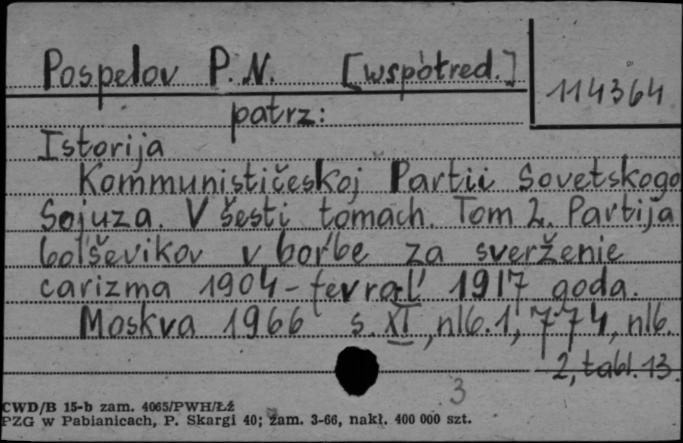 Pospelov P. N. [wspótred.]
114364
patrz:
Istorija
Kommunističeskoj Partii Sovetskogo
Sojuza. V šesti tomach. Tom 2. Partija
bol'ševikov v bor'be za sverženie
carizma 1904 - fevral' 1917 goda.
Moskva 1966 s. XI, nlb. 1, 774, nlb.
2, tabl. 13.
3
CWD/B 15-b zam. 4065/PWH/Łź
PZG w Pabianicach, P. Skargi 40; zam. 3-66, nakł. 400 000 szt.